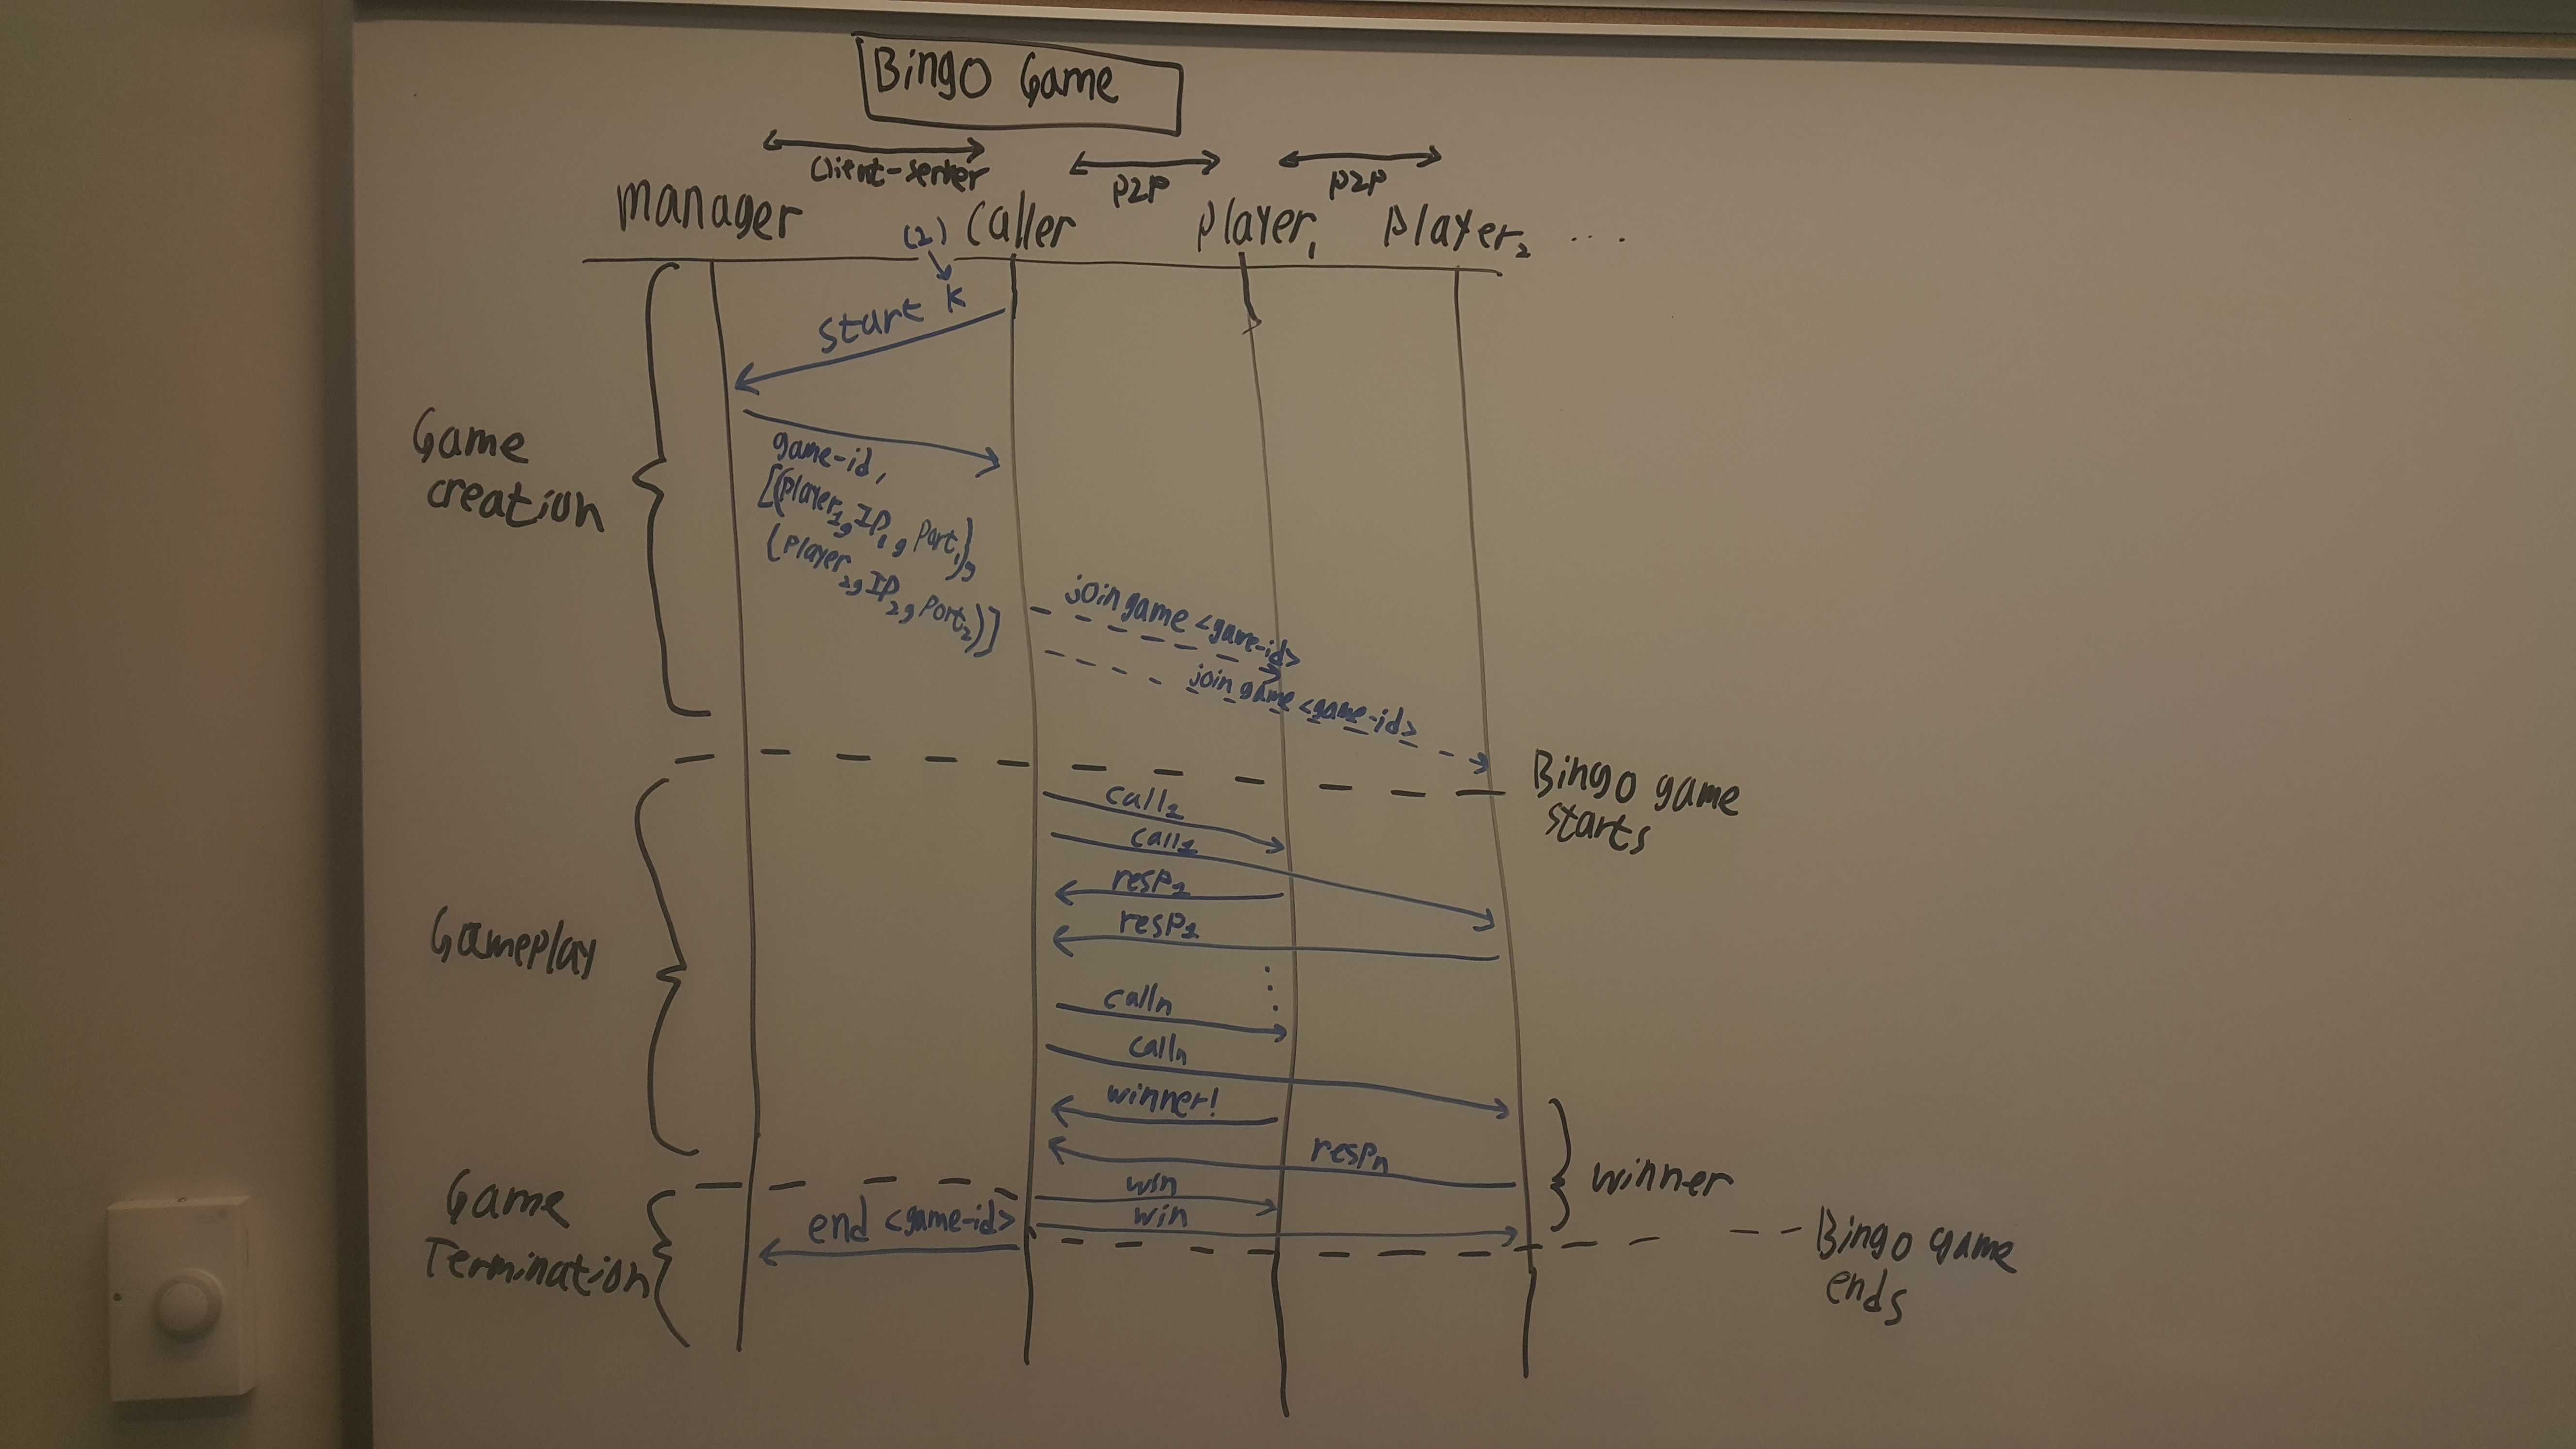 Bingo Game
client-server
P2P
P2P
manager
(2)
caller
player₁
player₂ ....
start K
Game
creation
game-id,
[(player₁, IP₁, Port₁),
(player₂, IP₂, Port₂)]
join game <game-id>
join game <game-id>
Bingo game
starts
call₁
call₁
resp₁
resp₁
Gameplay
calln
calln
winner!
respn
winner
win
win
Game
Termination
end <game-id>
Bingo game
ends